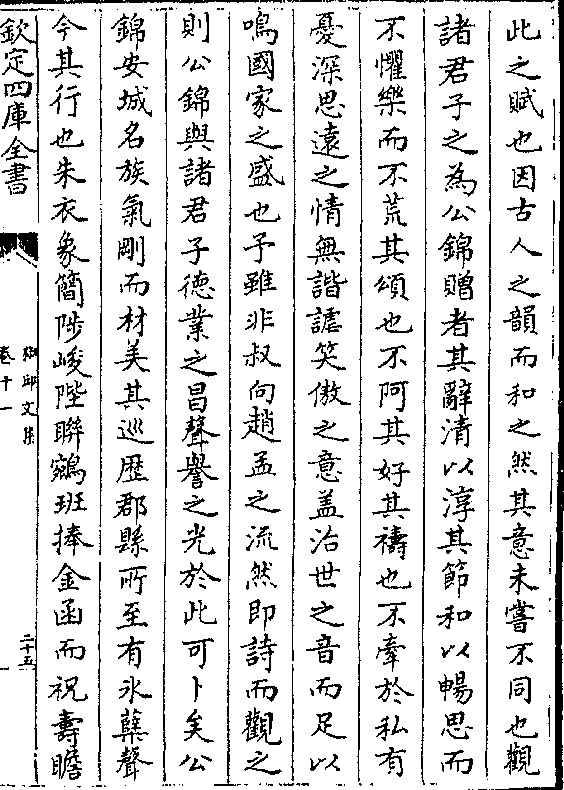 此之賦也因古人之韻而和之然其意未嘗不同也觀
諸君子之為公錦贈者其辭清以淳其節和以暢思而
不懼樂而不荒其頌也不阿其好其禱也不牽於私有
憂深思遠之情無諧謔笑傲之意盖治世之音而足以
鳴國家之盛也予雖非叔向趙孟之流然即詩而觀之
則公錦與諸君子徳業之昌聲譽之光於此可卜矣公
錦安城名族氣剛而材美其巡歴郡縣所至有氷蘗聲
今其行也朱衣象簡陟峻陛聨鵷班捧金函而祝壽瞻
欽定四庫全書
卷十一
二十五